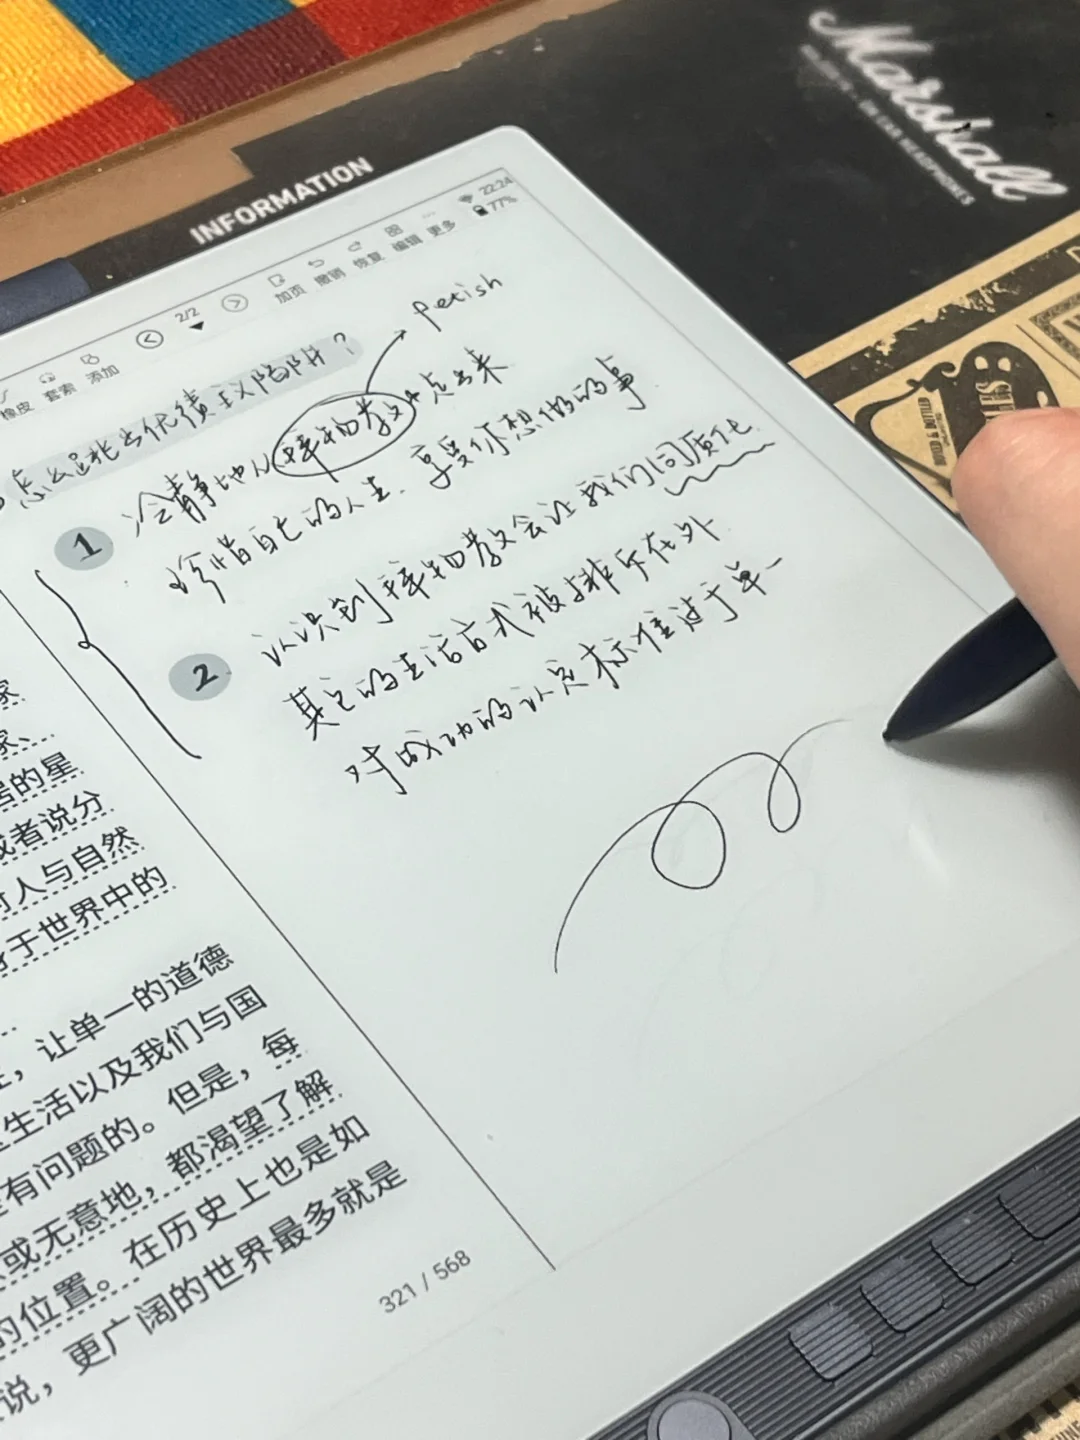 Marshall
ON EAR HEADPHONES
INFORMATION
22:24
77%
橡皮 套索 添加 2/2 加页 撤销 恢复 编辑 更多
怎么逃出优绩主义陷阱?
fetish
1 冷静地从拜物教中走出来
珍惜自己的人生、享受你想做的事
2 认识到拜物教会让我们同质化
其它的生活方式被排斥在外
对成功的认定标准过于单一
家
家、...
居的星
或者说分
对人与自然
于世界中的
...
,让单一的道德
生活以及我们与国
有问题的。但是,每
或无意地,都渴望了解
的位置。在历史上也是如
说,更广阔的世界最多就是
321 / 568